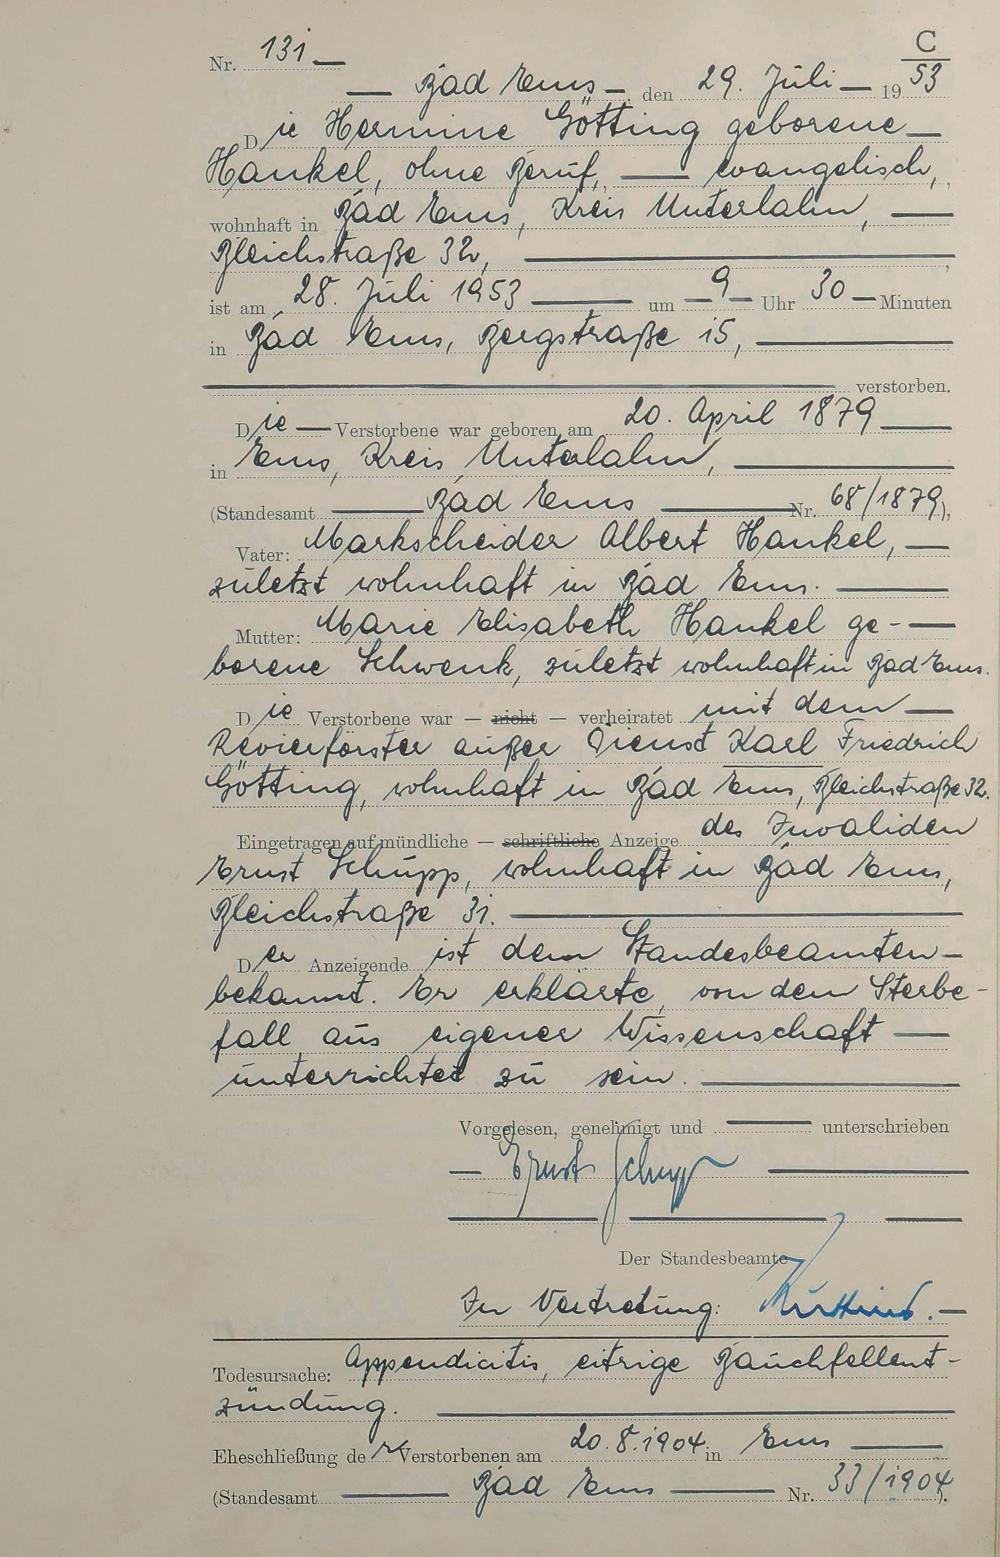 C
Nr. 131
Bad Ems den 29. Juli 1953
Die Hermine Götting geborene
Hankel, ohne Beruf, evangelisch,
wohnhaft in Bad Ems, Kreis Unterlahn,
Bleichstraße 32,
ist am 28. Juli 1953 um 9 Uhr 30 Minuten
in Bad Ems, Bergstraße 15,
verstorben.
Die Verstorbene war geboren am 20. April 1879
in Ems, Kreis Unterlahn,
(Standesamt Bad Ems Nr. 68/1879),
Vater: Markscheider Albert Hankel,
zuletzt wohnhaft in Bad Ems.
Mutter: Marie Elisabeth Hankel ge-
borene Schwenk, zuletzt wohnhaft in Bad Ems.
Die Verstorbene war — nicht — verheiratet mit dem
Revierförster außer Dienst Karl Friedrich
Götting, wohnhaft in Bad Ems, Bleichstraße 32.
Eingetragen auf mündliche — schriftliche Anzeige des Invaliden
Ernst Schupp, wohnhaft in Bad Ems,
Bleichstraße 31.
Der Anzeigende ist dem Standesbeamten
bekannt. Er erklärte, von dem Sterbe-
fall aus eigener Wissenschaft
unterrichtet zu sein.
Vorgelesen, genehmigt und unterschrieben
Ernst Schupp
Der Standesbeamte
In Vertretung:
Todesursache: Appendicitis, eitrige Bauchfellent-
zündung.
Eheschließung der Verstorbenen am 20.8.1904 in Ems
(Standesamt Bad Ems Nr. 33/1904).